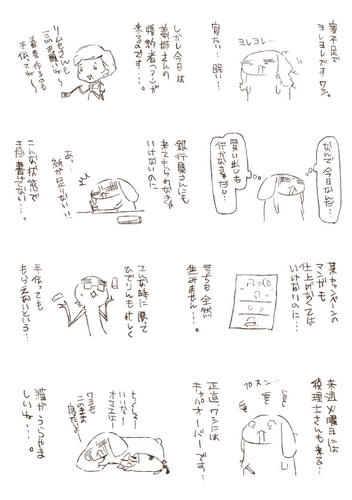 寝不足で
ヨレヨレです ワシ。
ヨレヨレ〜
寝たい…眠い…
しかし今日は
義姉さんの
婚約者(マンガ)が
来るのです…。
リムセさんも
一品お願いね〜
着を作るのも
手伝ってね〜
なんで 今日なんだ…
買い出しも
行かなきゃだし…
銀行員さんにも
来てもらわなきゃ
いけないのに
あ…
紙が足りない!!
こんな状態で
土極書けない…。
某キャンペーンの
マンガも
仕上げなくては
いけないのに…
まちも全然
進みません…。
こんな時に限って
ひでりんも忙しく
手伝っても
もらえないという…
来週火曜日には
税理士さんも来る…
プスン…
正直、ワシには
キャパオーバーです…
いいな…
オマエは…
ワシも
このまま
寝たいよ…
猫がうらやま
しいゆ…。